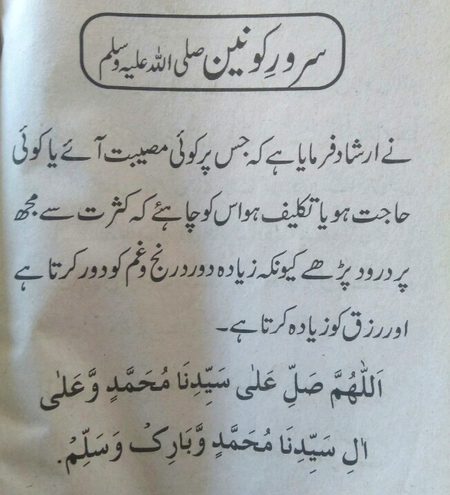 سرورِ کونین صلی اللہ علیہ وسلم
نے ارشاد فرمایا ہے کہ جس پر کوئی مصیبت آئے یا کوئی
حاجت ہو یا تکلیف ہو اس کو چاہئے کہ کثرت سے مجھ
پر درود پڑھے کیونکہ زیادہ درد رنج و غم کو دور کرتا ہے
اور رزق کو زیادہ کرتا ہے۔
اَللّٰهُمَّ صَلِّ عَلٰى سَيِّدِنَا مُحَمَّدٍ وَّعَلٰى
اٰلِ سَيِّدِنَا مُحَمَّدٍ وَّبَارِكْ وَسَلِّمْ.